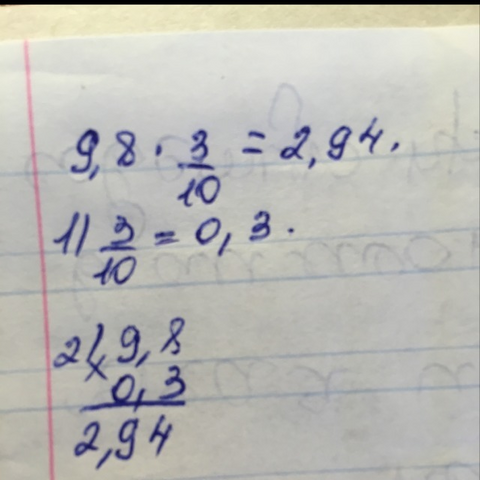 9,8 · 3/10 = 2,94.
1) 3/10 = 0,3.
2) 9,8
× 0,3
2,94